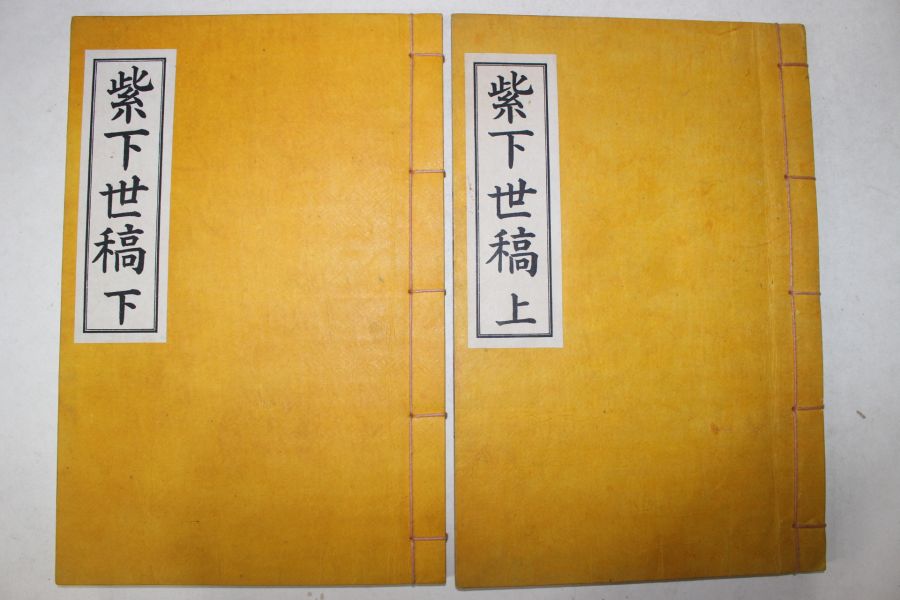 紫下世稿 上
紫下世稿 下